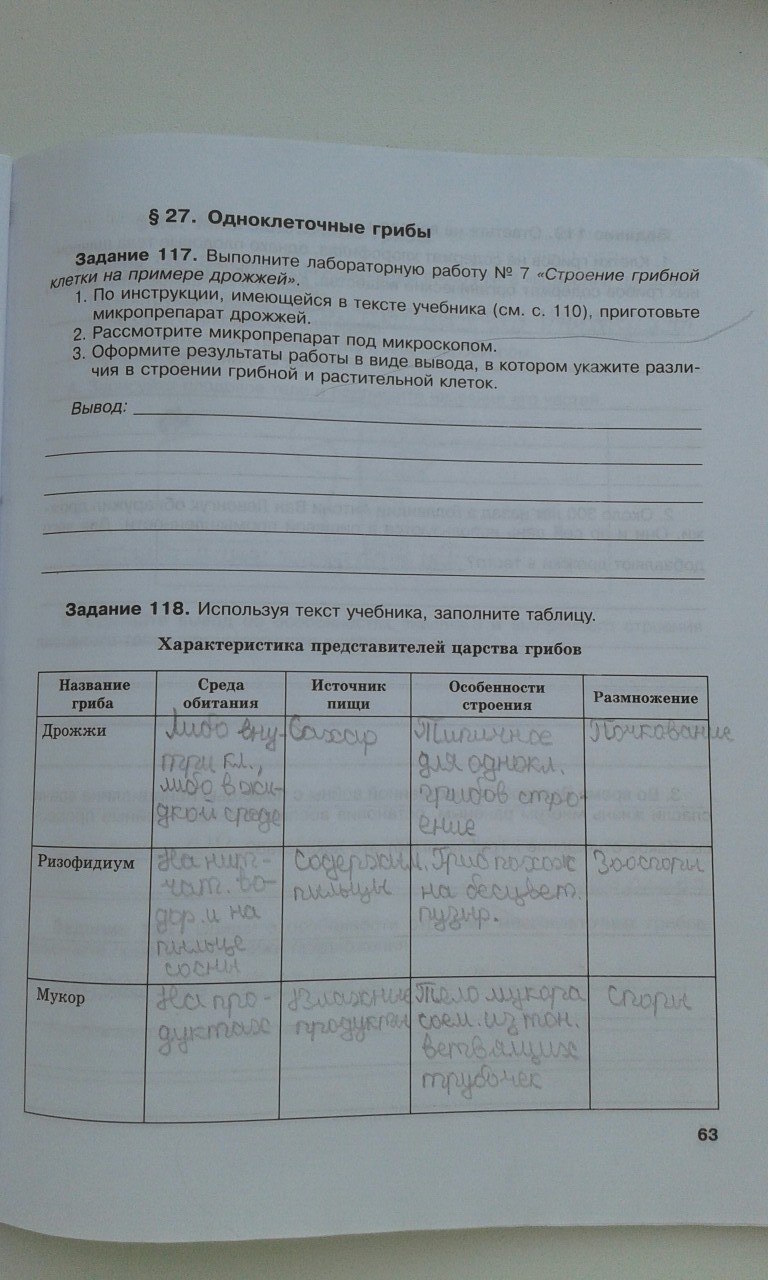 § 27. Одноклеточные грибы
Задание 117. Выполните лабораторную работу № 7 «Строение грибной
клетки на примере дрожжей».
1. По инструкции, имеющейся в тексте учебника (см. с. 110), приготовьте
микропрепарат дрожжей.
2. Рассмотрите микропрепарат под микроскопом.
3. Оформите результаты работы в виде вывода, в котором укажите разли-
чия в строении грибной и растительной клеток.
Вывод:
Задание 118. Используя текст учебника, заполните таблицу.
Характеристика представителей царства грибов
Название
гриба
Среда
обитания
Источник
пищи
Особенности
строения
Размножение
Дрожжи
Либо вну-
три кл.,
либо в жи-
дкой среде
Сахар
Типичное
для однокл.
грибов стро-
ение
Почкование
Ризофидиум
На нит-
чат. во-
дор. и на
пыльце
сосны
Содержим.
пыльцы
Гриб похож
на бесцвет.
пузыр.
Зооспоры
Мукор
На про-
дуктах
Влажные
продукты
Тело мукора
соем. из тон.
ветвящих
трубочек
Споры
63